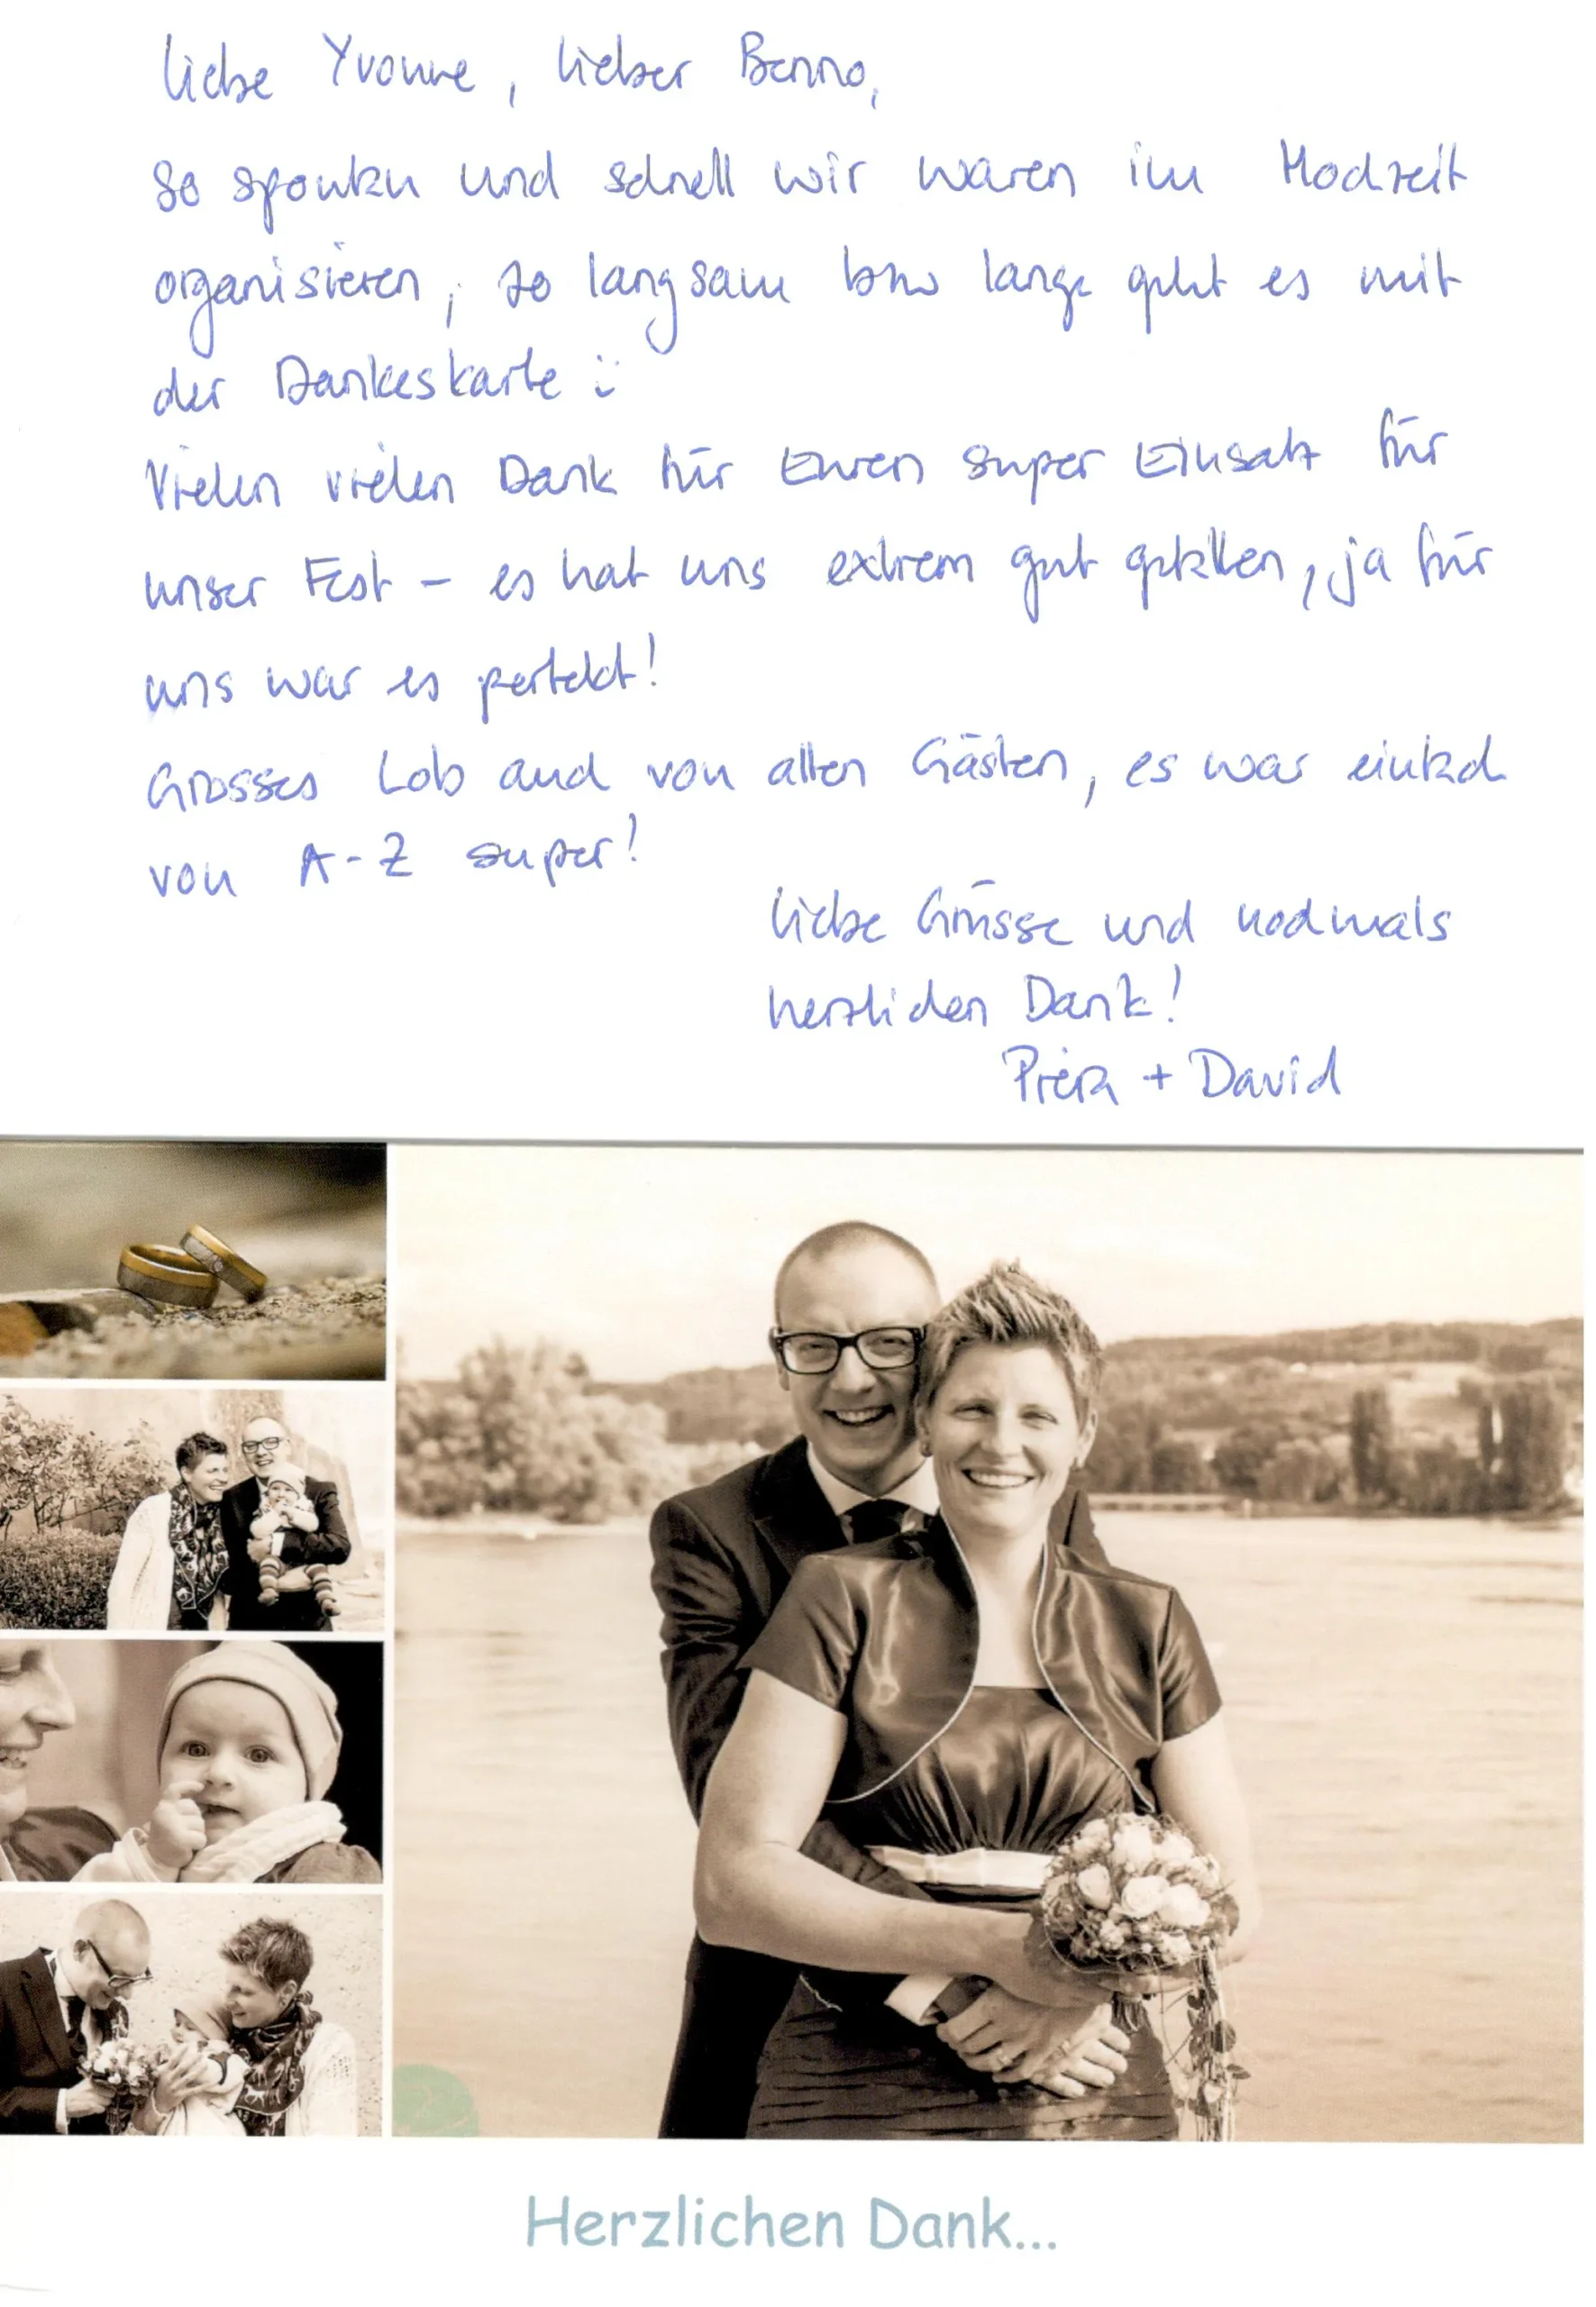 liebe Yvonne, lieber Benno,
so spontan und schnell wir waren im Hochzeit
organisieren, so langsam bzw lange geht es mit
der Dankeskarte :)
Vielen vielen Dank für Euren super Einsatz für
unser Fest – es hat uns extrem gut gefallen, ja für
uns war es perfekt!
Grosses Lob auch von allen Gästen, es war einfach
von A-Z super!
liebe Grüsse und nochmals
herzlichen Dank!
+ David
Herzlichen Dank...